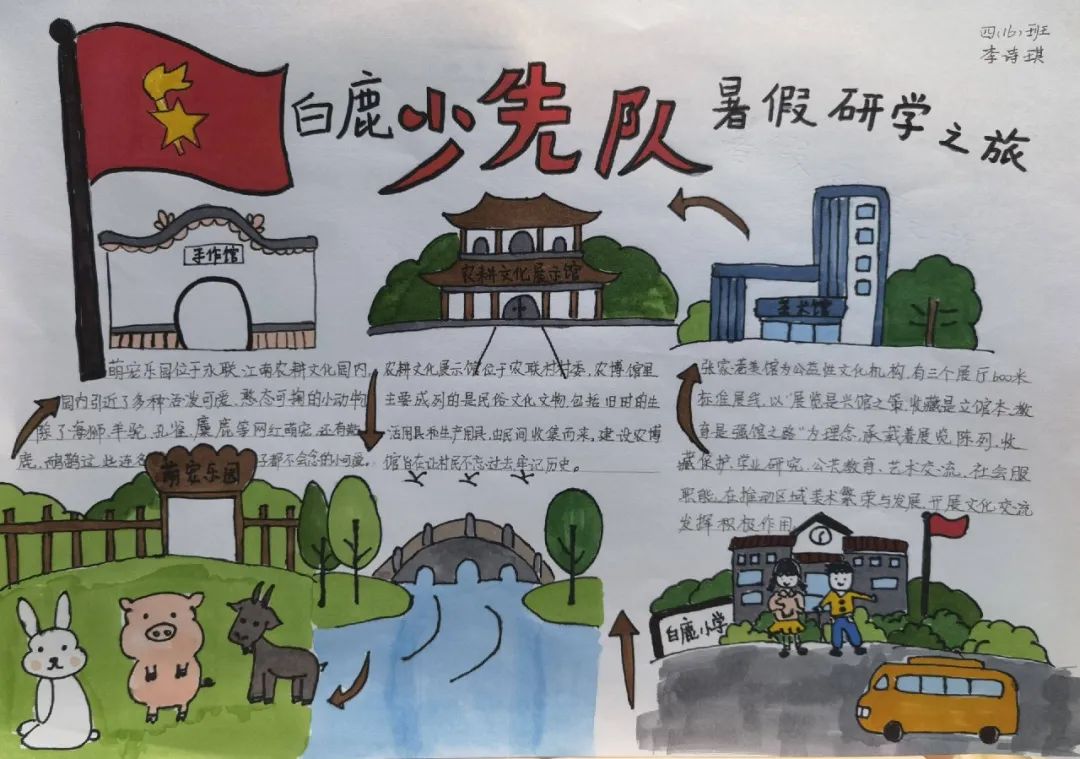 四(16)班
李诗琪
白鹿少先队暑假研学之旅
手作馆
农耕文化展示馆
美术馆
萌宠乐园位于永联江南农耕文化园内。
园内引近了多种活发可爱、憨态可掬的小动物
除了海狮、羊驼、孔雀、麋鹿等网红萌宠,还有
鹿、鸸鹋这些连名 子都不会念的小可爱。
农耕文化展示馆位于农联村村委,农博馆里
主要成列的是民俗文化文物,包括旧时的生
活用具和生产用具,由民间收集而来,建设农博
馆旨在让村民不忘过去牢记历史。
张家港美馆为公益性文化机构,有三个展厅600米
标准展线,以"展览是兴馆之策,收藏是立馆本,教
育是强馆之路"为理念,承载着展览、陈列、收
藏保护、学业研究、公共教育、艺术交流、社会服
职能,在推动区域美术繁荣与发展,开展文化交流
发挥积极作用。
萌宠乐园
白鹿小学